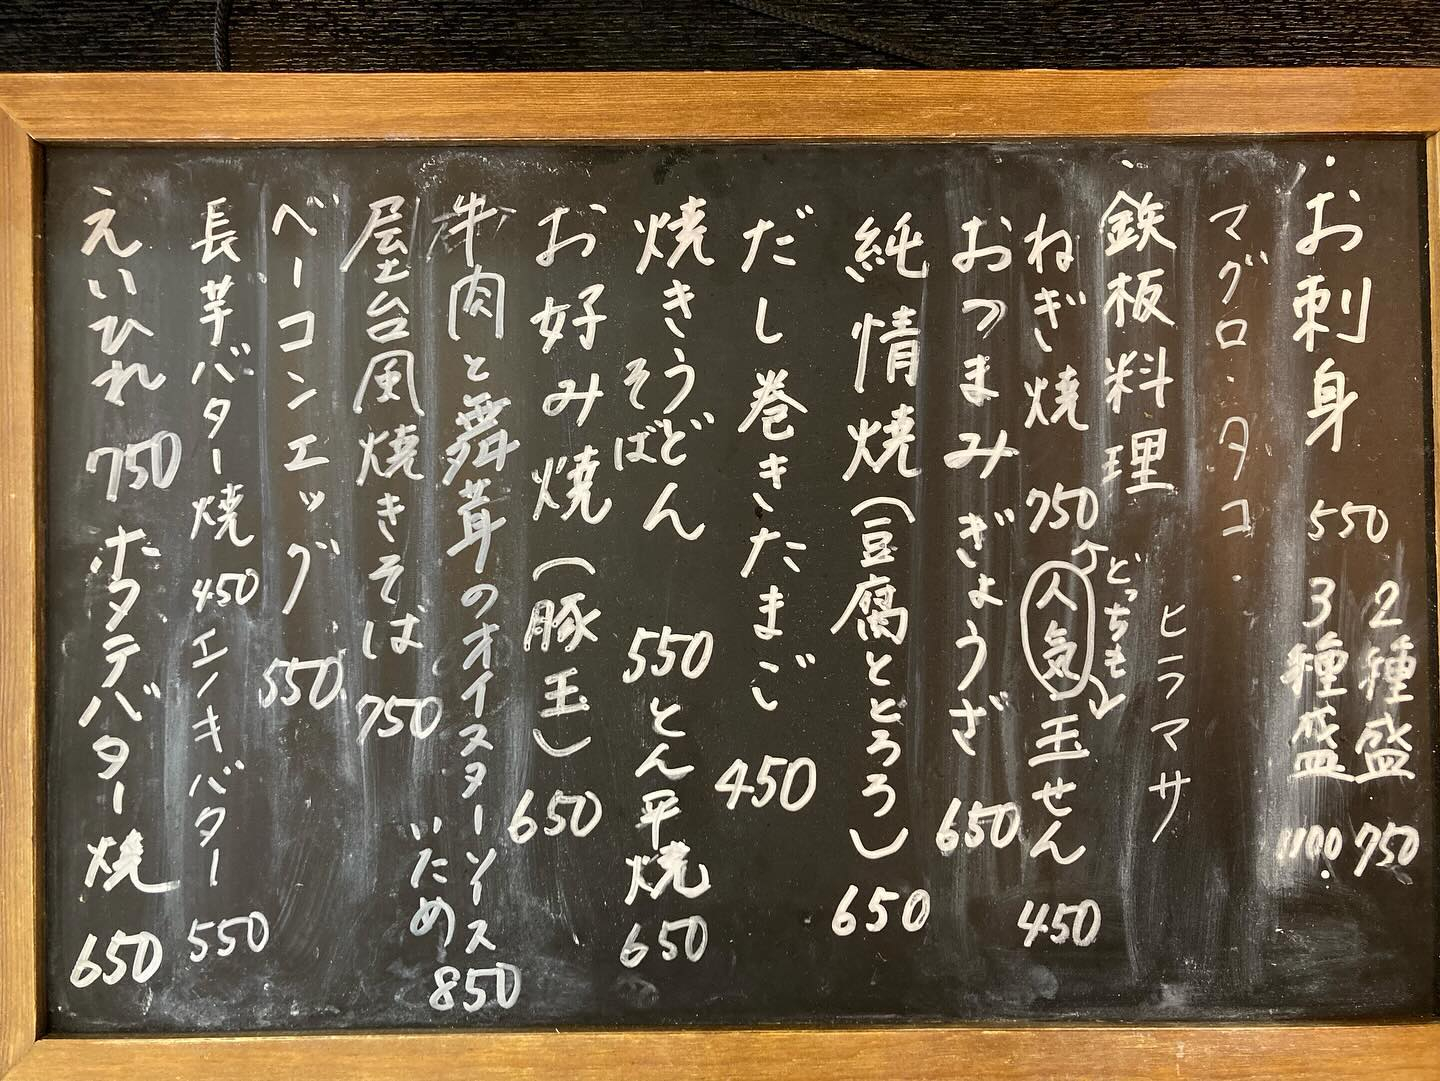 お刺身 550
2種盛 750
3種盛 1100
マグロ・タコ・ヒラマサ
鉄板料理
ねぎ焼 750 人気 玉せん 450
どっちも
おつまみぎょうざ 650
純情焼(豆腐ととろろ) 650
だし巻きたまご 450
焼きうどん 550 とん平焼 650
そば
お好み焼(豚玉) 650
牛肉と舞茸のオイスターソース
いため 850
屋台風焼きそば 750
ベーコンエッグ 550
長芋バター焼 450 エノキバター 550
えいひれ 750 ホタテバター焼 650